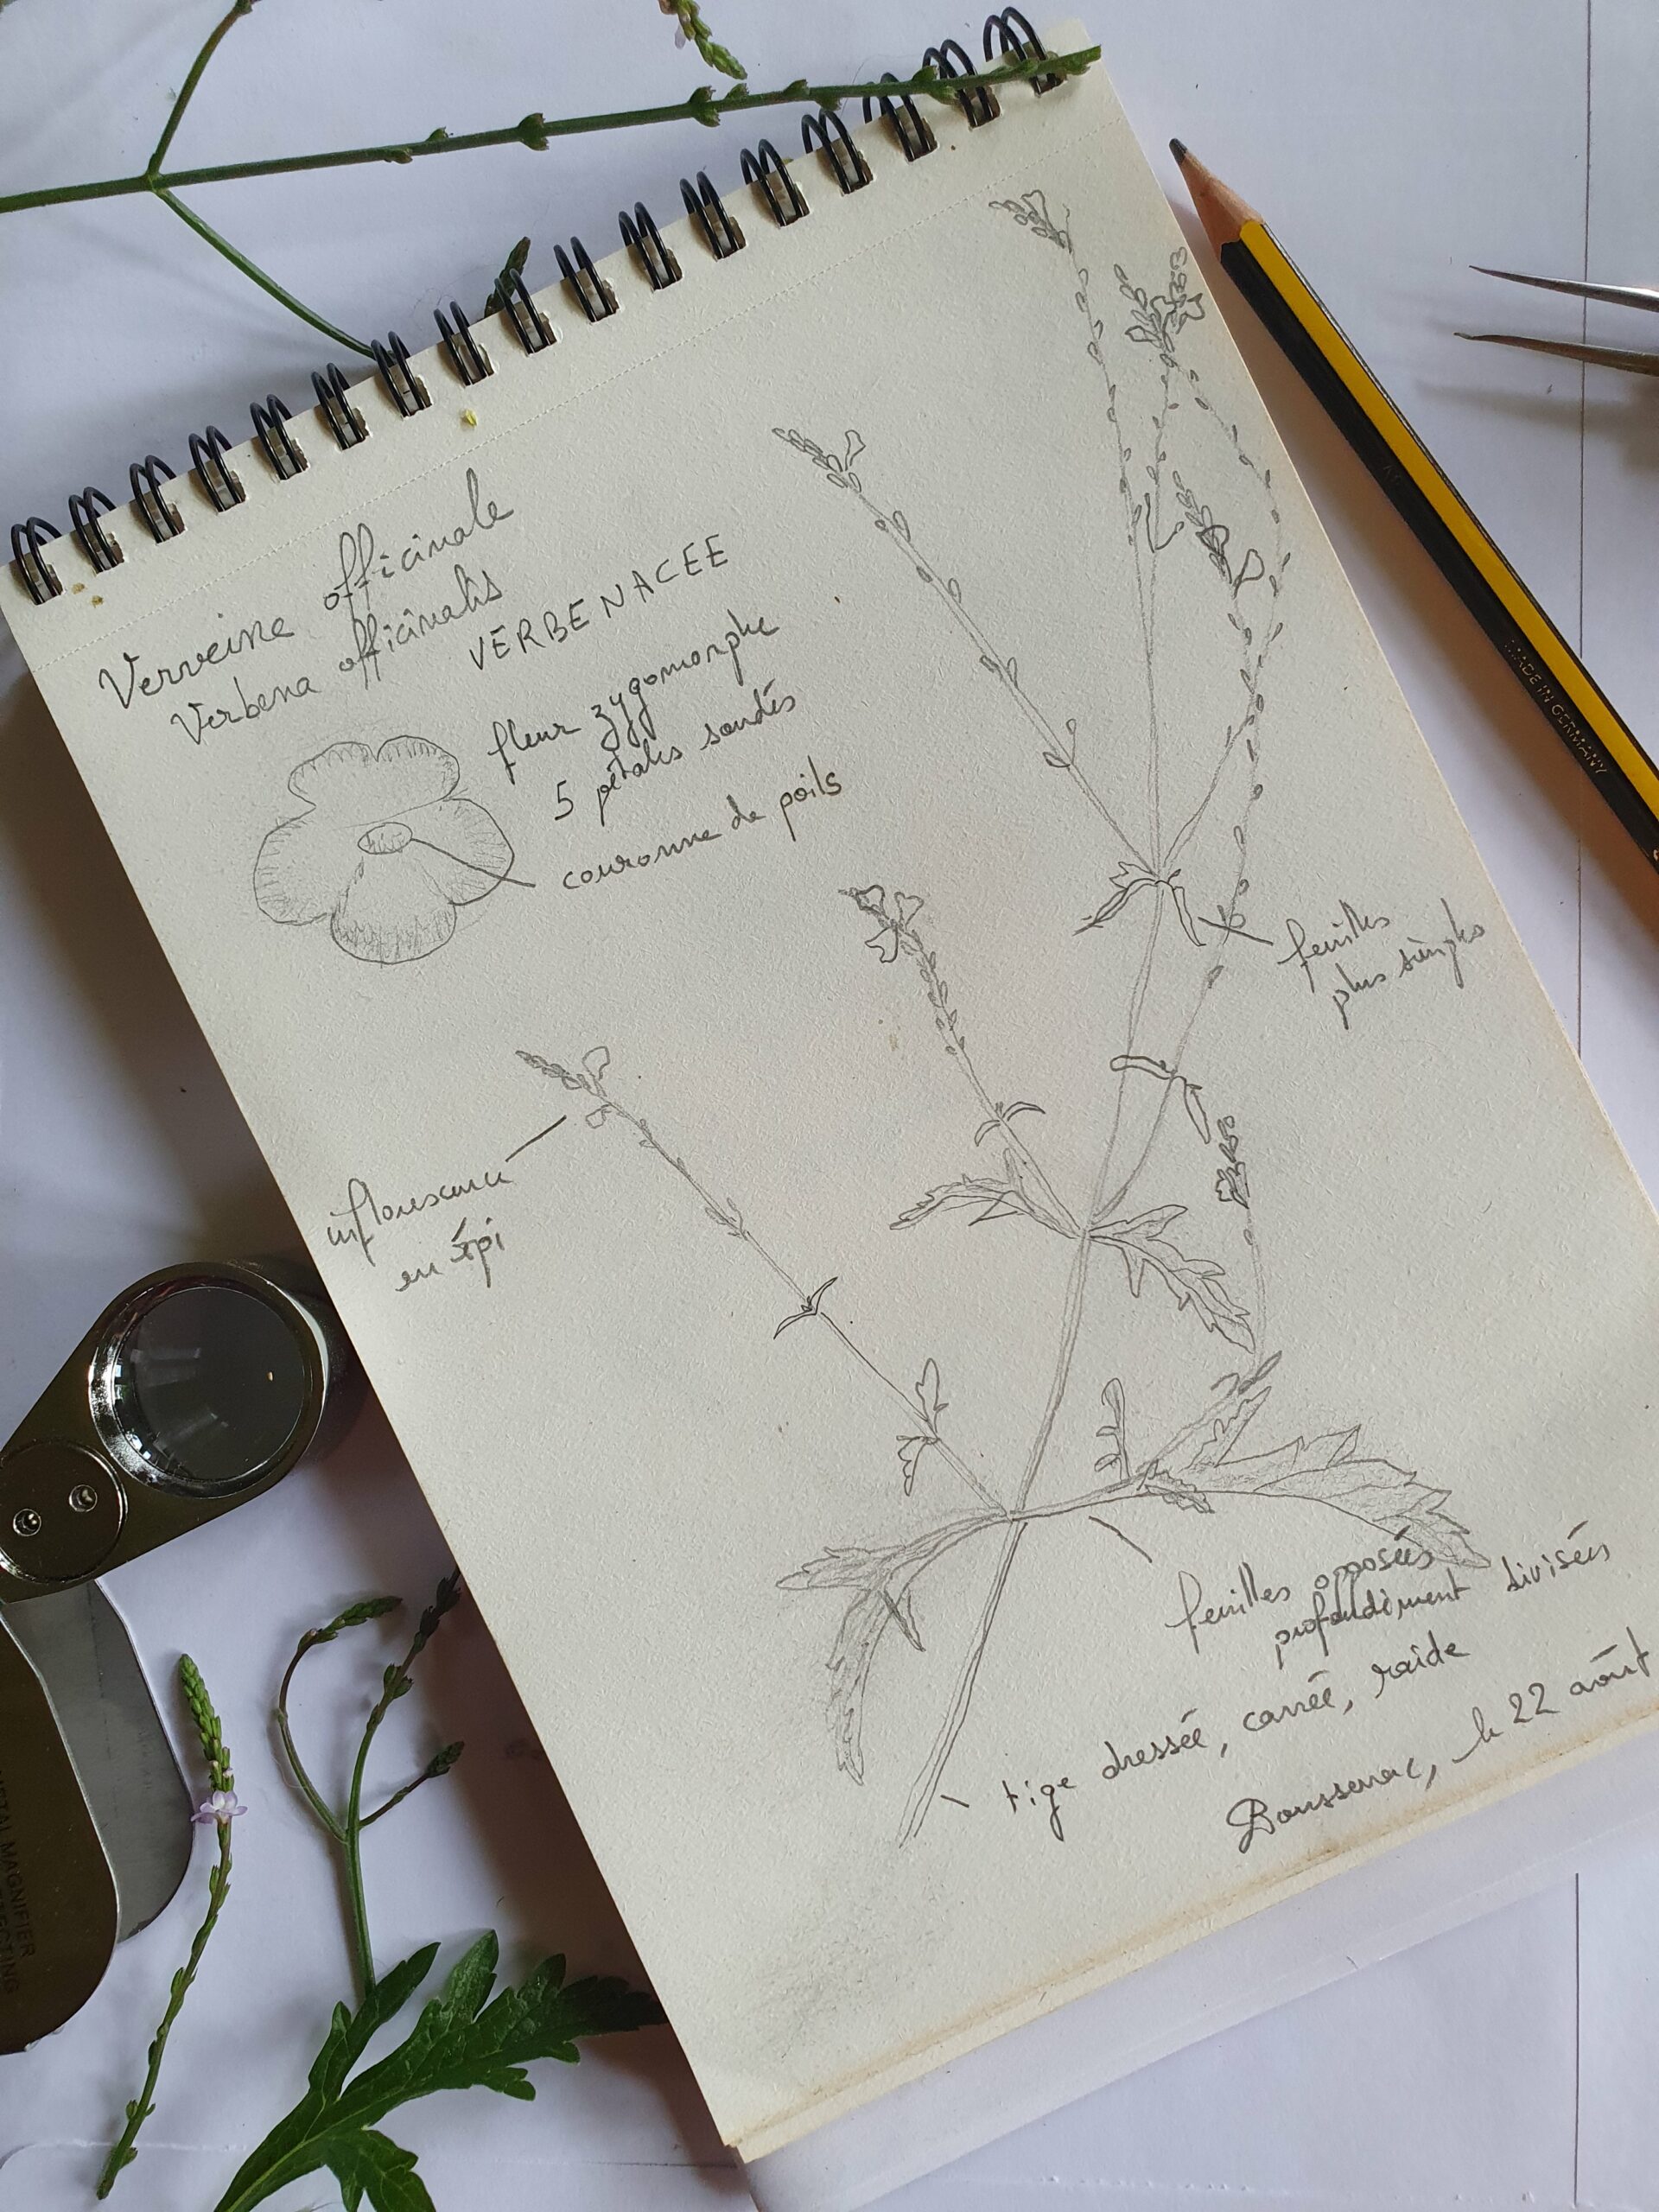 Verveine officinale
Verbena officinalis
VERBENACEE
fleur zygomorphe
5 pétales soudés
couronne de poils
feuilles
plus simples
inflorescence
en épi
feuilles opposées
profondément divisées
tige dressée, carrée, raide
Boussenac, le 22 août
MADE IN GERMANY
METAL MAGNIFIER